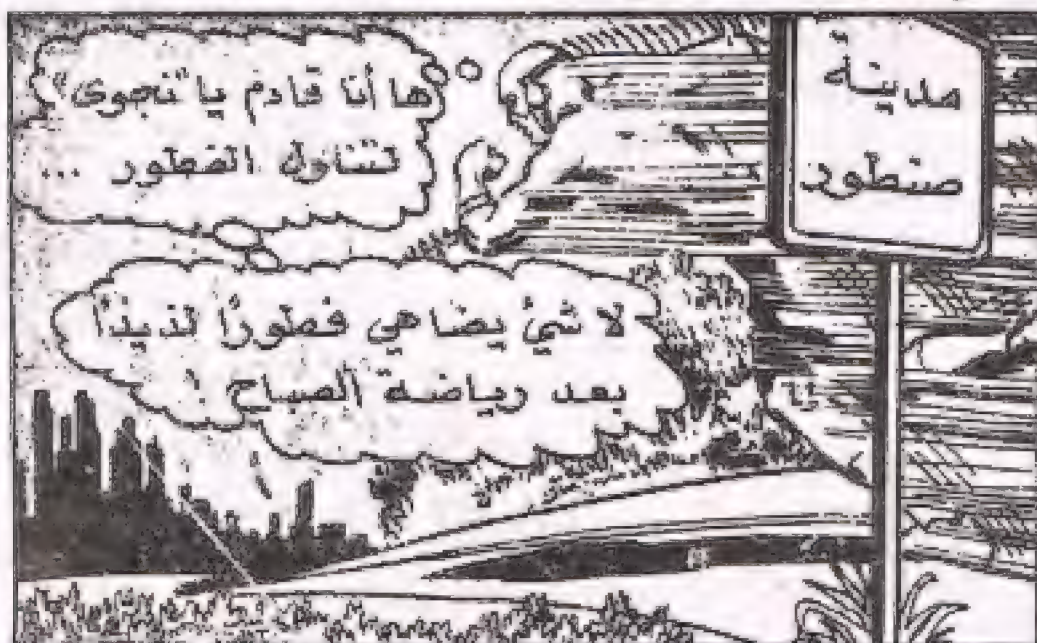 مدينة
صنطور
ها أنا قادم يا "نجوى"
لتناول الفطور ...
لا شيْ يضاهي فطورًا لذيذًا
بعد رياضة الصباح !